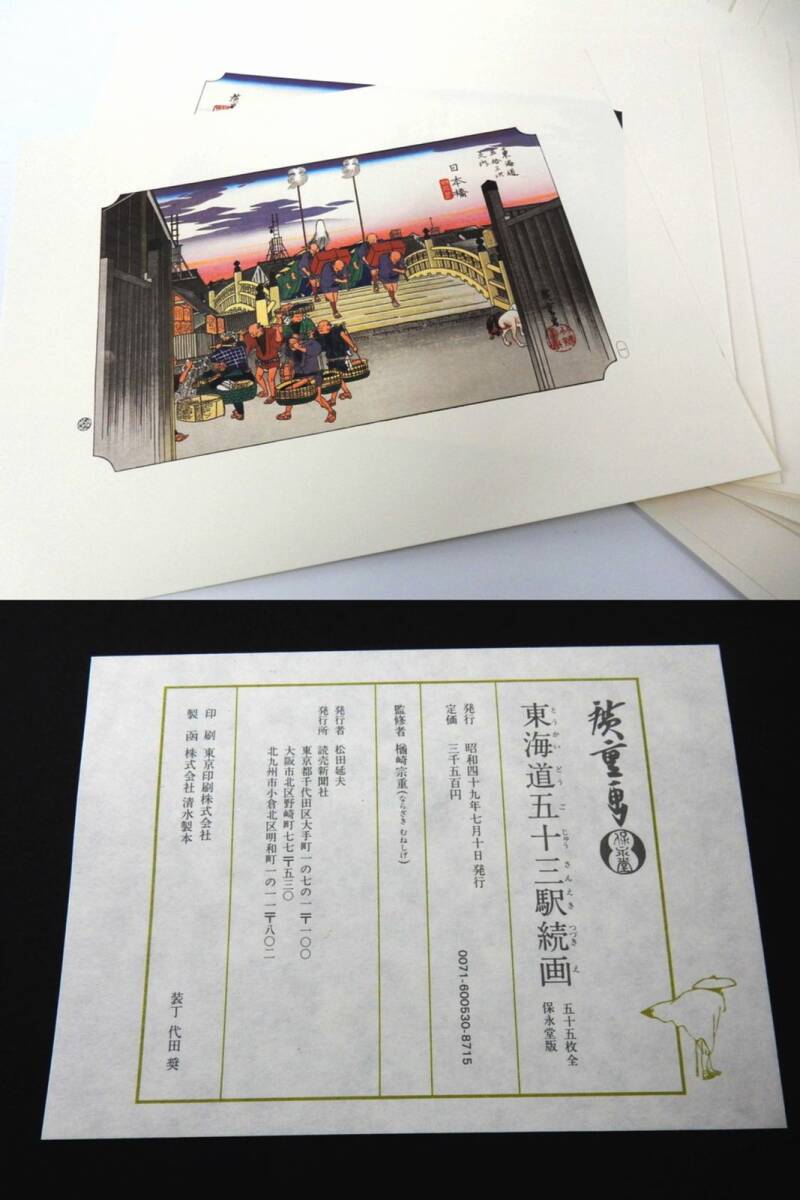 東海道
五拾三次
之内
日本橋
廣重画
保永堂
東海道五十三駅続画
とうかいどうごじゅうさんえきつづきえ
五十五枚全
保永堂版
発行 昭和四十九年七月十日発行
定価 三千五百円
0071-600530-8715
監修者 楢崎宗重(ならざき むねしげ)
発行者 松田延夫
発行所 読売新聞社
東京都千代田区大手町一の七の一〒一〇〇
大阪市北区野崎町七七〒五三〇
北九州市小倉北区明和町一の一一〒八〇二
印刷 東京印刷株式会社
製函 株式会社 清水製本
装丁 代田 奨